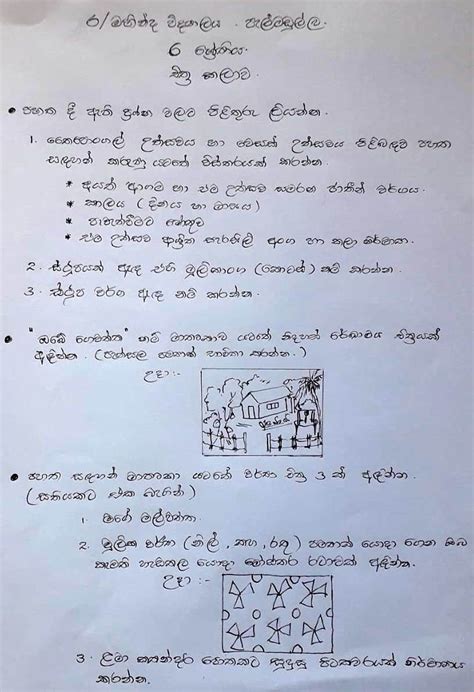 ර/මහින්ද විද්‍යාලය. පැල්මඩුල්ල.
6 ශ්‍රේණිය.
චිත්‍ර කලාව.
පහත දී ඇති ප්‍රශ්න වලට පිළිතුරු ලියන්න.
1. තෛපොංගල් උත්සවය හා වෙසක් උත්සවය පිළිබඳව පහත
සඳහන් කරුණු යටතේ විස්තරයක් කරන්න.
* අයත් ආගම හා එම උත්සව සමරන ජාතීන් වර්ගය.
* කාලය (දිනය හා මාසය)
* පැවැත්වීමට හේතුව
* එම උත්සව ආශ්‍රිත සැරසිලි අංග හා කලා නිර්මාණ.
2. ස්ථූපයක් ඇඳ එහි මූලිකාංග (කොටස්) නම් කරන්න.
3. ස්ථූප වර්ග ඇඳ නම් කරන්න.
"ඔබේ ගෙවත්ත" නම් මාතෘකාව යටතේ නිදහස් රේඛාමය චිත්‍රයක්
අඳින්න. (පැන්සල පමණක් භාවිතා කරන්න.)
උදා:-
පහත සඳහන් මාතෘකා යටතේ වර්ණ චිත්‍ර 3 ක් අඳින්න.
(සතියකට එක බැගින්)
1. මගේ මල්වත්ත.
2. මූලික වර්ණ (නිල්, කහ, රතු) පමණක් යොදා ගෙන ඔබ
කැමති හැඩතල යොදා මෝස්තර රටාවක් අඳින්න.
උදා:-
3. ළමා කතන්දර පොතකට සුදුසු පිටකවරයක් නිර්මාණය
කරන්න.